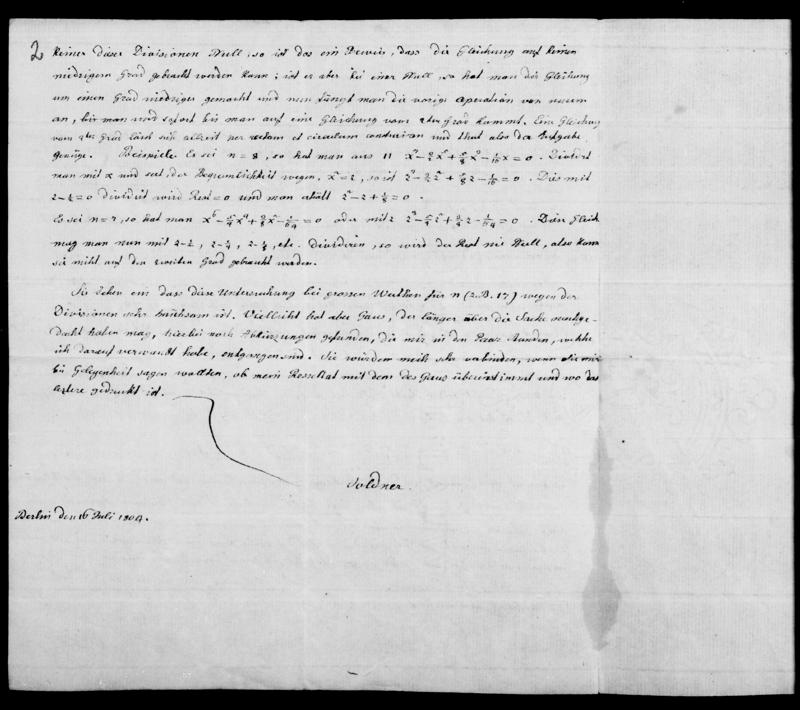 2
keiner dieser Divisionen Null, so ist das ein Beweis, dass die Gleichung auf keinen
niedrigern Grad gebracht werden kann; ist er aber bei einer Null, so hat man die Gleichung
um einen Grad niedriger gemacht und nun fängt man die vorige Operation von neuem
an, bis man sofort bis man auf eine Gleichung vom 2ten Grad kommt. Eine Gleichung
vom 2ten Grad lässt sich allzeit per rectam et circulum construiren und thut also der Aufgabe
genüge. Beispiele. Es sei n = 8, so hat man aus 11
man mit x und setzt, der Bequemlichkeit wegen, x² = z, so ist
dividirt wird Rest = 0 und man erhält
Es sei n = 7, so hat man oder mit z Diese Gleich
mag man nun mit etc. dividiren, so wird der Rest nie Null, also kann
sie nicht auf den zweiten Grad gebracht werden.
Sie sehen ein dass diese Untersuchung bei grossen Werthen für n (z.B. 17) wegen der
Divisionen sehr mühsam ist. Vielleicht hat aber Gaus, der länger über die Sache nachge-
dacht haben mag, hierbei noch Abkürzungen gefunden, die mir in den Paar Stunden, welche
ich darauf verwandt habe, entgangen sind. Sie würden mich sehr verbinden, wenn Sie mir
bei Gelegenheit sagen wollten, ob mein Resultat mit dem des Gaus übereinstimmt und wo das
letztere gedruckt ist.
Soldner.
Berlin den 16 Juli 1804.